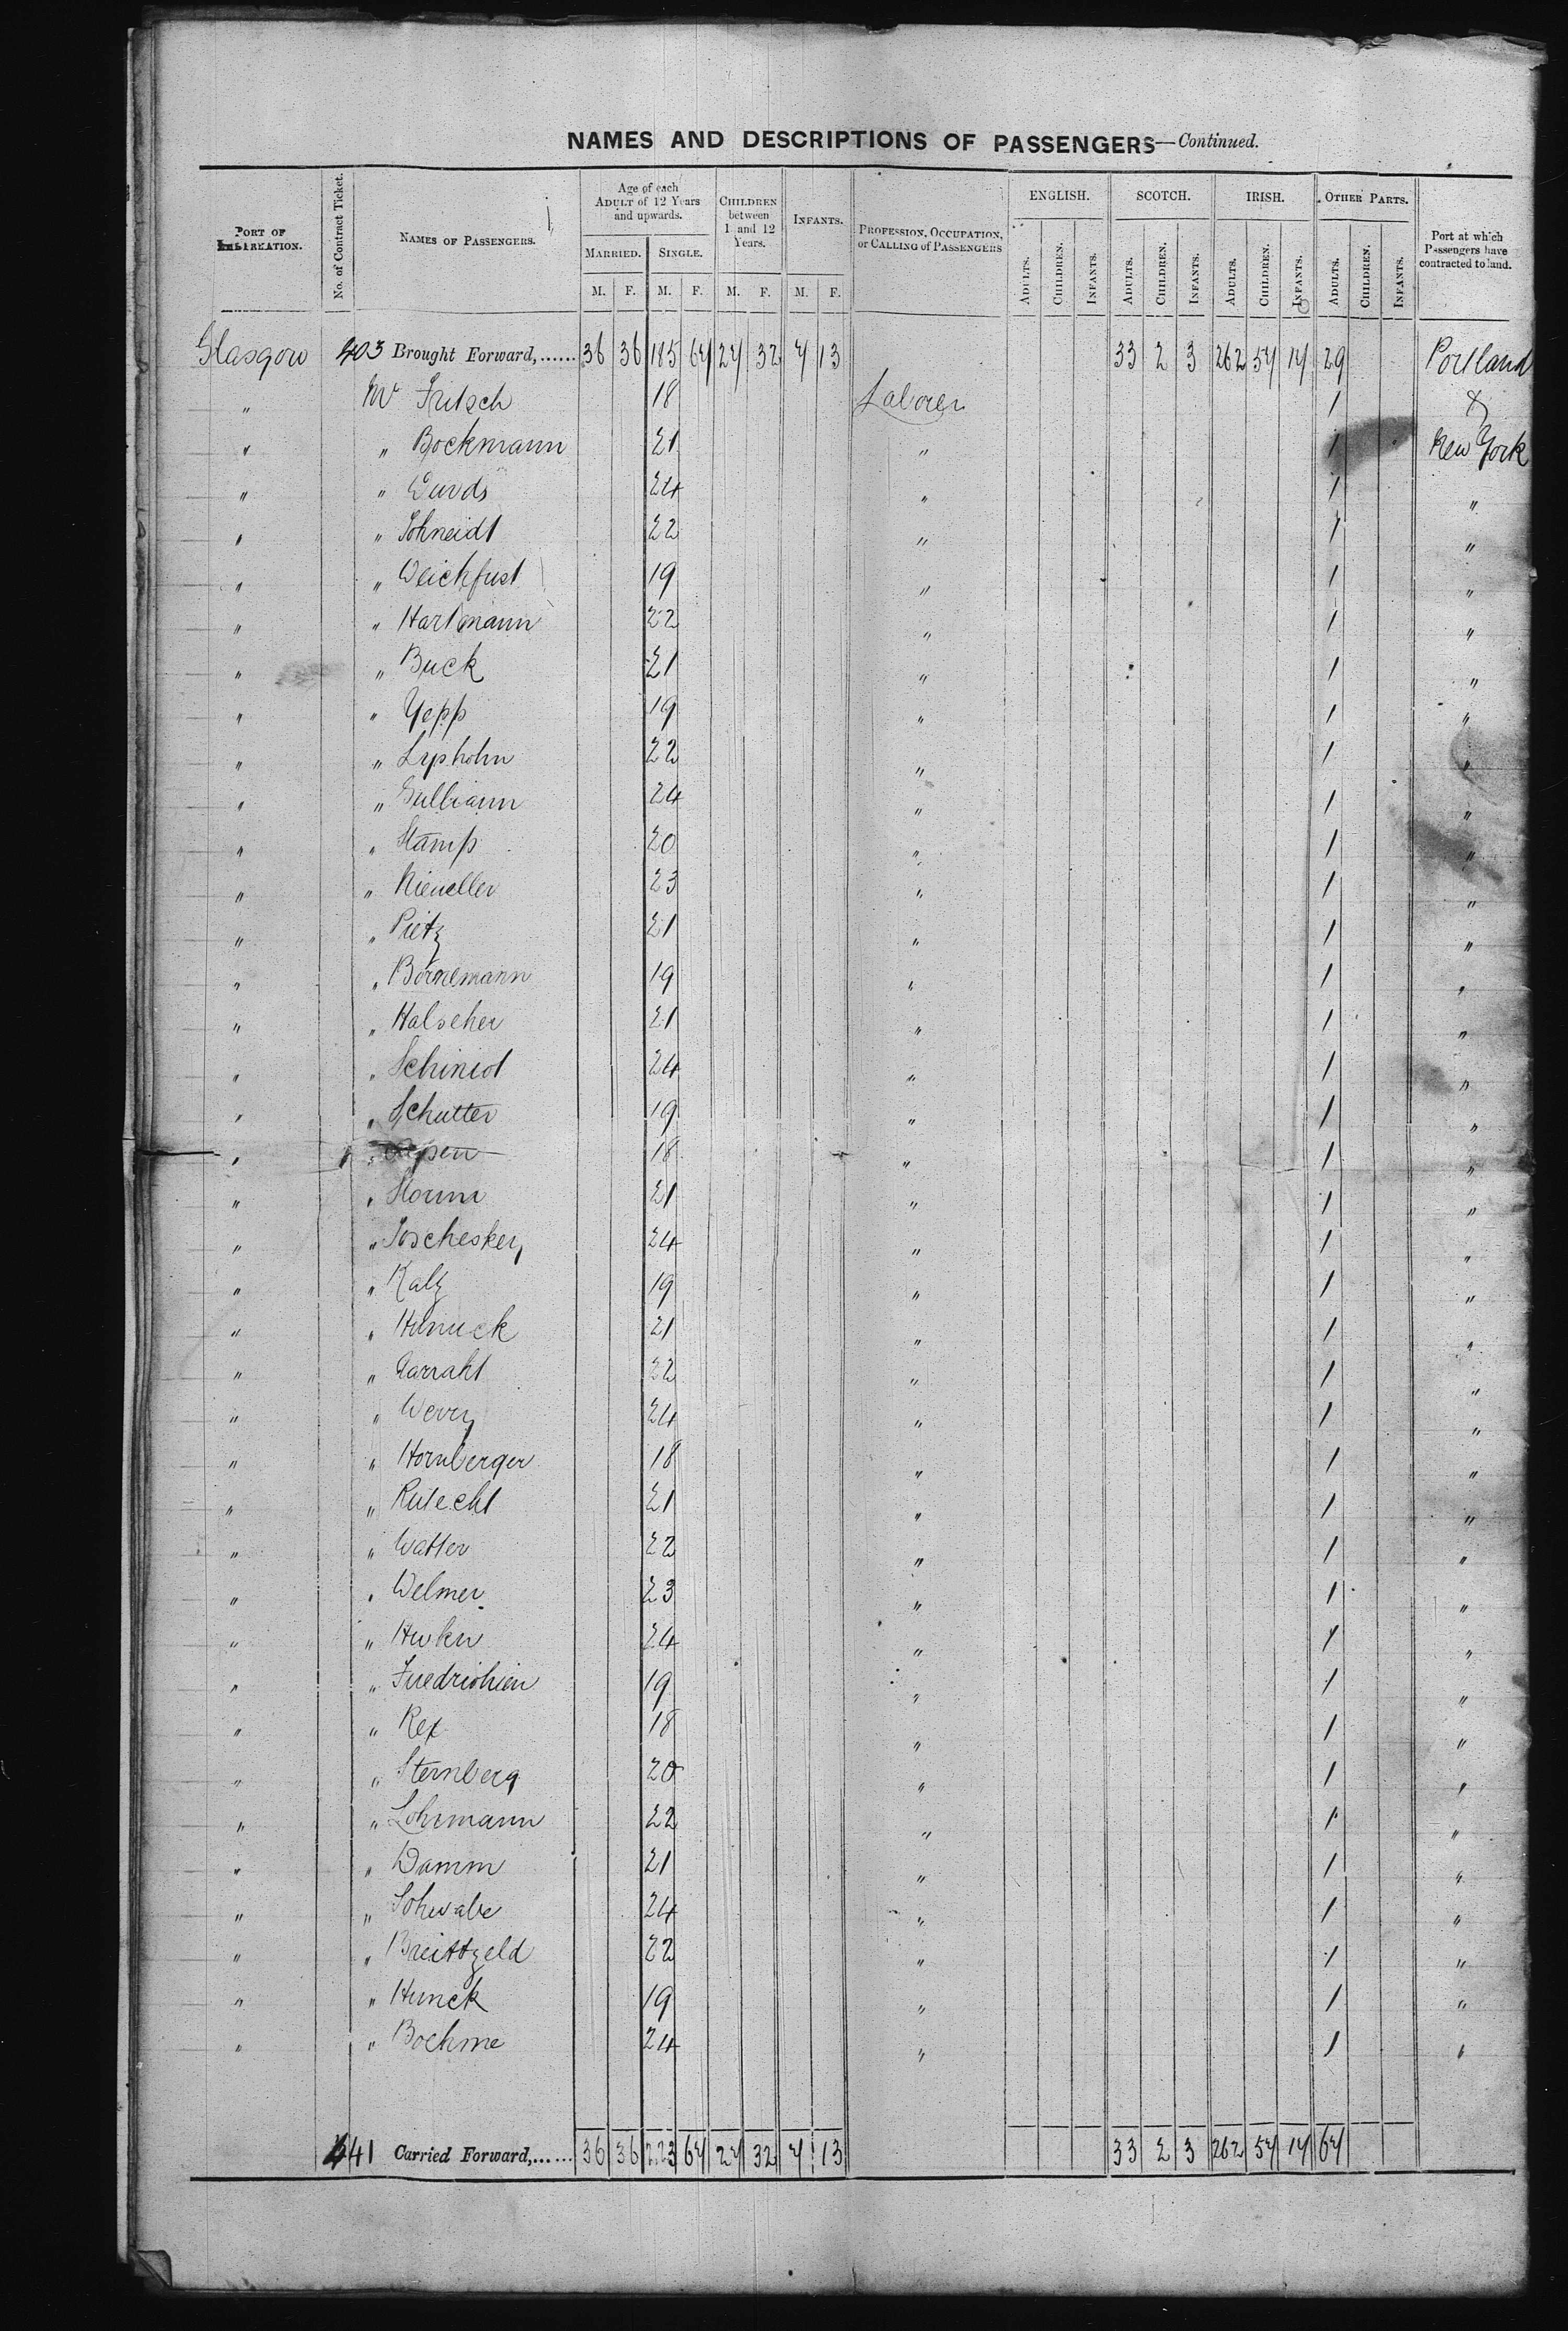 NAMES AND DESCRIPTIONS OF PASSENGERS—Continued.
PORT OF EMBARKATION. No. of Contract Ticket. NAMES OF PASSENGERS. Age of each ADULT of 12 Years and upwards. MARRIED. M. F. SINGLE. M. F. CHILDREN between 1 and 12 Years. M. F. INFANTS. M. F. PROFESSION, OCCUPATION, or CALLING of PASSENGERS ENGLISH. ADULTS. CHILDREN. INFANTS. SCOTCH. ADULTS. CHILDREN. INFANTS. IRISH. ADULTS. CHILDREN. INFANTS. OTHER PARTS. ADULTS. CHILDREN. INFANTS. Port at which Passengers have contracted to land.
Glasgow 403 Brought Forward,...... 36 36 185 67 27 32 7 13 33 2 3 262 57 17 29 Portland
" Mr Fritsch 18 Laborer 1 &
" " Bockmann 21 " 1 New York
" " 24 " 1 "
" " Schneidt 22 " 1 "
" " Weichfust 19 " 1 "
" " Hartmann 22 " 1 "
" " Buck 21 " 1 "
" " Yepp 19 " 1 "
" " Lypholm 22 " 1 "
" " 24 " 1 "
" " Stamp 20 " 1 "
" " Nieueller 23 " 1 "
" " Pietz 21 " 1 "
" " Bornemann 19 " 1 "
" " Halscher 21 " 1 "
" " Schmidt 24 " 1 "
" " Schutter 19 " 1 "
" " 18 " 1 "
" " Storm 21 " 1 "
" " Toschesky 24 " 1 "
" " Katz 19 " 1 "
" " 21 " 1 "
" " Garraht 22 " 1 "
" " Werry 24 " 1 "
" " Hornberger 18 " 1 "
" " Rutecht 21 " 1 "
" " Watter 22 " 1 "
" " Welmer 23 " 1 "
" " 24 " 1 "
" " 19 " 1 "
" " Rex 18 " 1 "
" " Sternberg 20 " 1 "
" " Lohrmann 22 " 1 "
" " Damm 21 " 1 "
" " Schwabe 24 " 1 "
" " Breittzeld 22 " 1 "
" " Hunck 19 " 1 "
" " Boehme 24 " 1 "
441 Carried Forward,...... 36 36 223 67 27 32 7 13 33 2 3 262 57 17 67